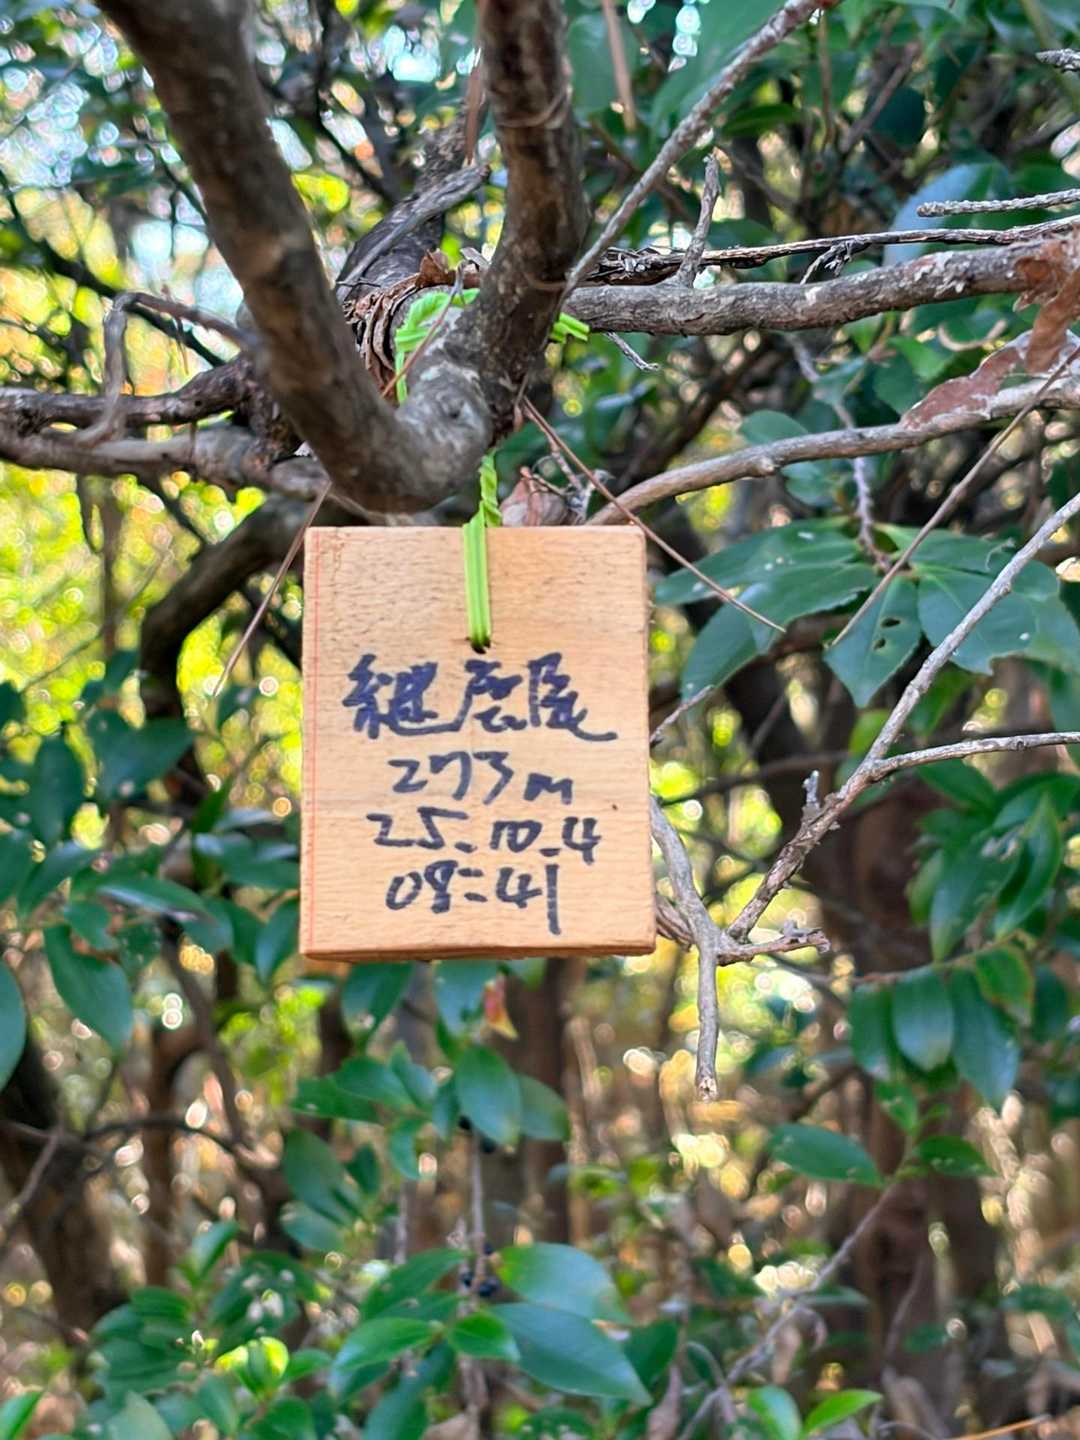 継鹿尾
273m
25.10.4
08:41